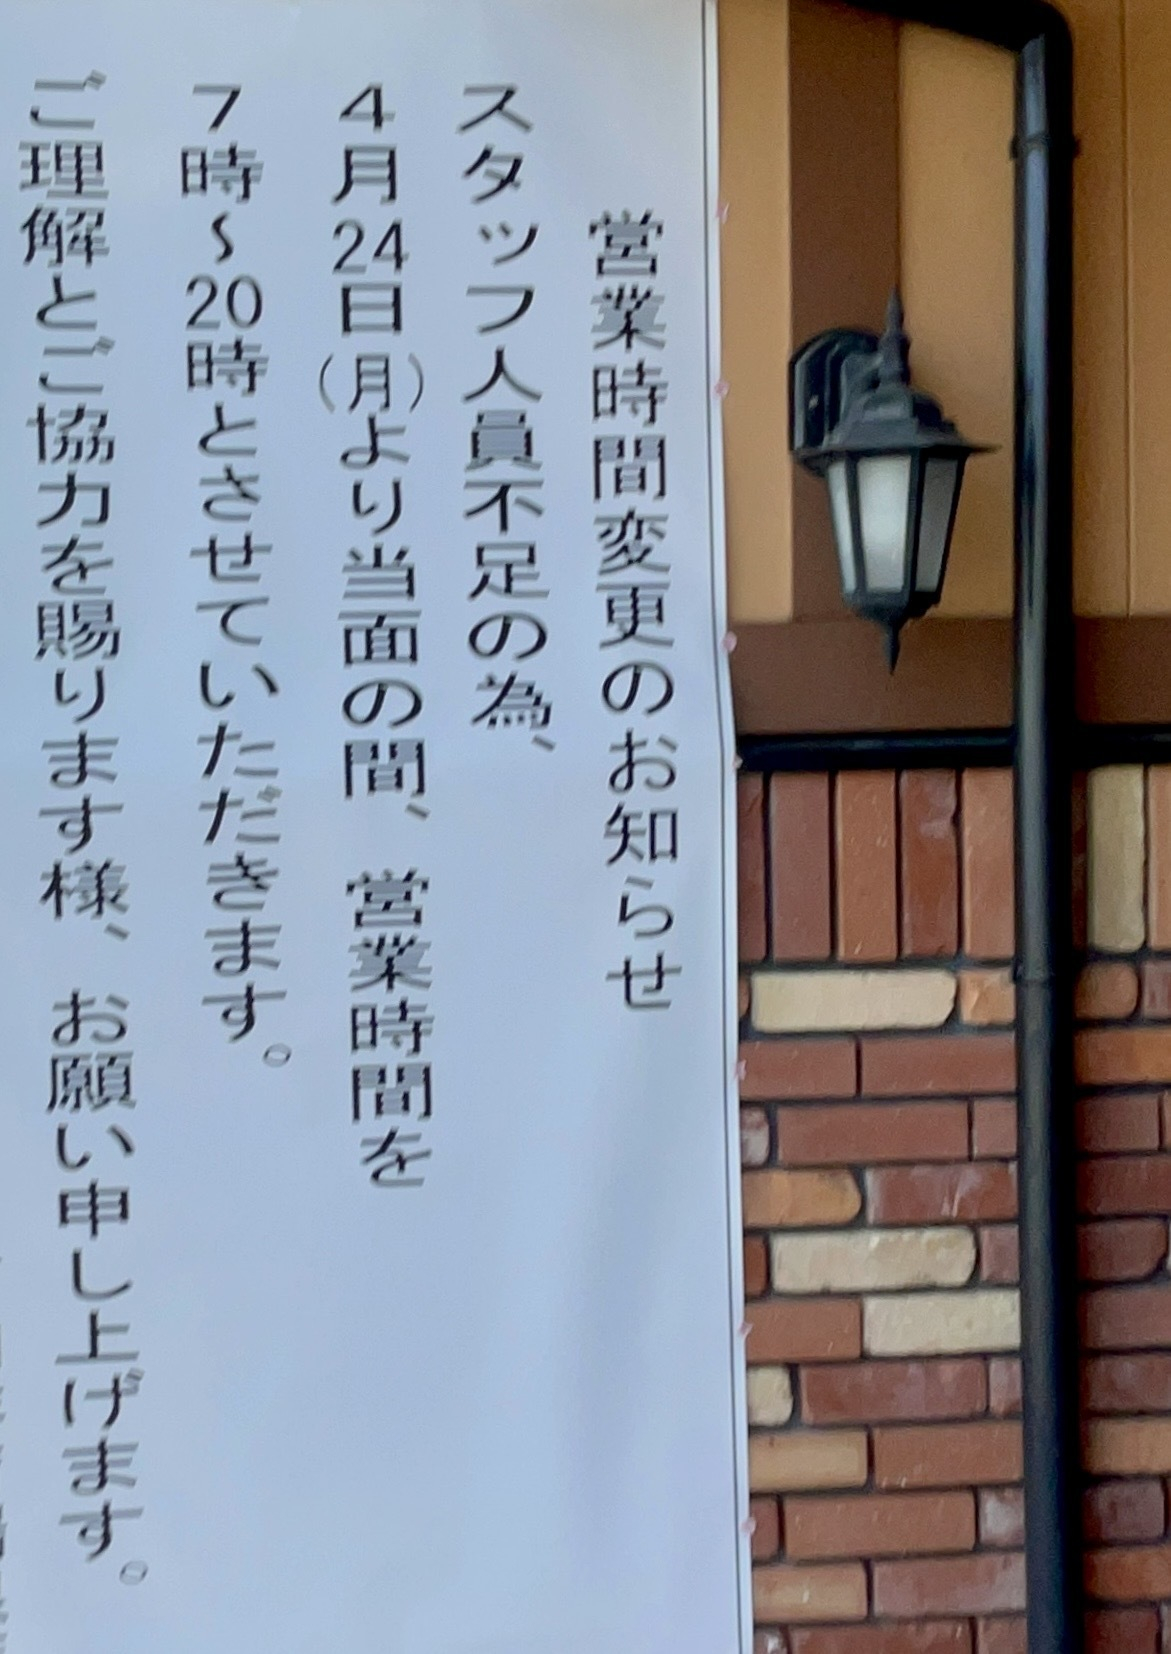 営業時間変更のお知らせ
スタッフ人員不足の為、
4月24日(月)より当面の間、営業時間を
7時〜20時とさせていただきます。
ご理解とご協力を賜ります様、お願い申し上げます。